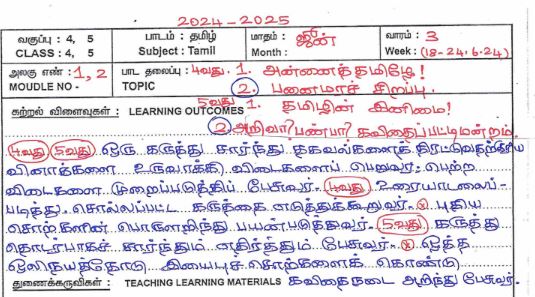 2024-2025
வகுப்பு : 4, 5 பாடம் : தமிழ் மாதம் : ஜூன் வாரம் : 3
CLASS : 4, 5 Subject : Tamil Month : Week : (18-24.6.24)
அலகு எண் : 1, 2 பாட தலைப்பு : 4வது. 1. அன்னைத்தமிழே!
MOUDLE NO - TOPIC 2. பனைமரச் சிறப்பு.
5வது 1. தமிழின் இனிமை!
கற்றல் விளைவுகள் : LEARNING OUTCOMES 2. அறிவா? பண்பா? கவிதைப்பட்டிமன்றம்.
4வது 5வது ஒரு கருத்து சார்ந்து தகவல்களைத் திரட்டுவதற்குரிய
வினாக்களை உருவாக்கி விடைகளைப் பெறுவர். பெற்ற
விடைகளை முறைப்படுத்திப் பேசுவர். 4வது உரையாடலைப்
படித்து சொல்லப்பட்ட கருத்தை எடுத்துக்கூறுவர். புதிய
சொற்களின் பொருளறிந்து பயன்படுத்துவர். 5வது கருத்து
தொடர்பாகச் சார்ந்தும் எதிர்த்தும் பேசுவர். ஒத்த
ஒலியத்தோடு இயைபுச் சொற்களைக் கொண்டு
துணைக்கருவிகள் : TEACHING LEARNING MATERIALS கவிதைநடை அறிந்து பேசுவர்.